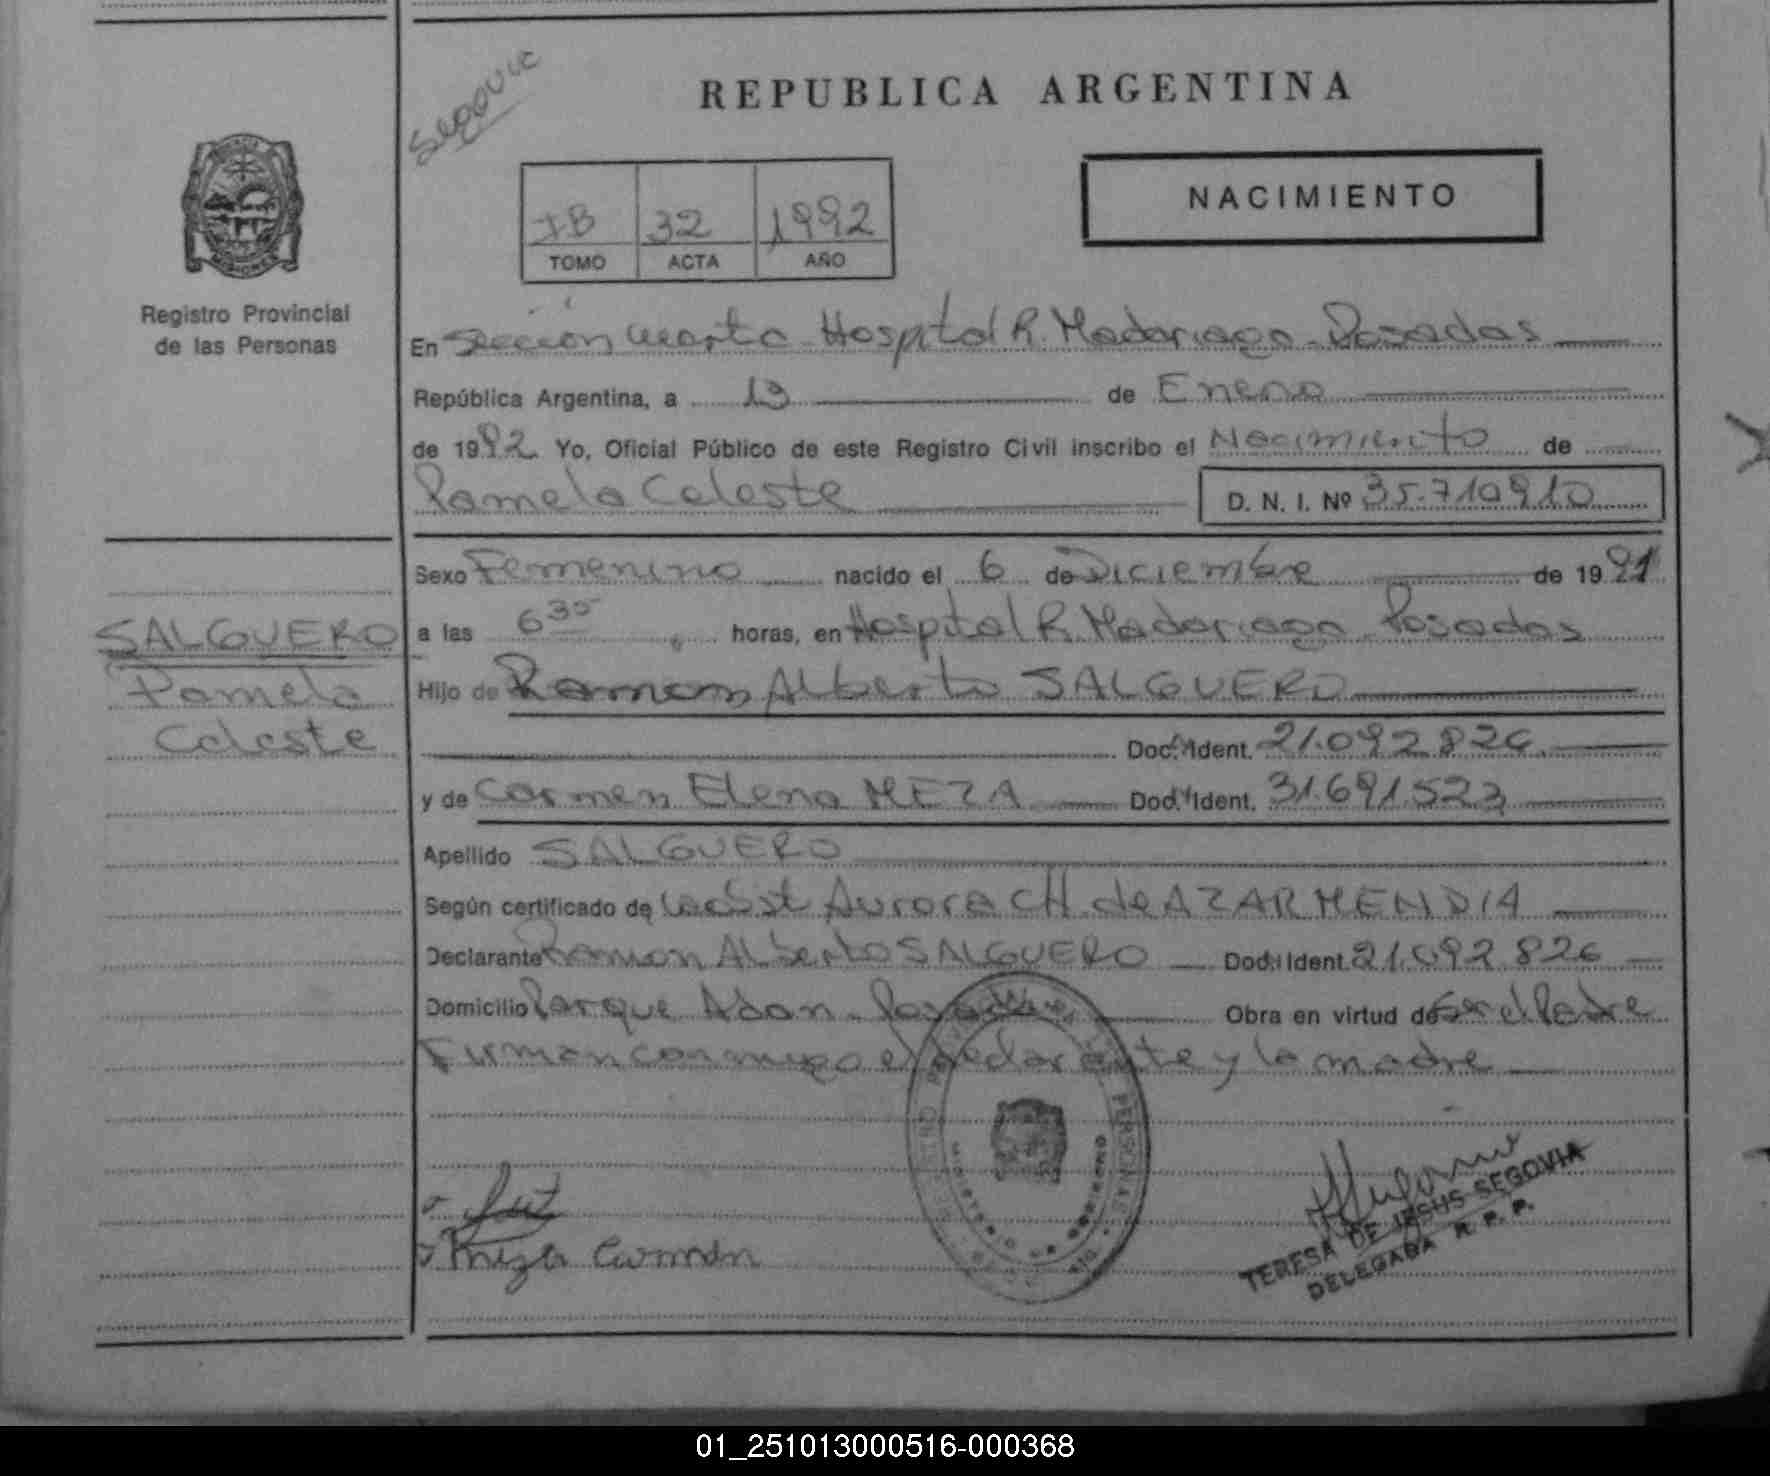 Segovia
REPUBLICA ARGENTINA
NACIMIENTO
IB 32 1992
TOMO ACTA AÑO
MISIONES
Registro Provincial
de las Personas
En Sección cuarta Hospital R. Madariaga - Posadas
República Argentina, a 13 de Enero
de 1992 Yo, Oficial Público de este Registro Civil inscribo el Nacimiento de
Pamela Celeste D. N. I. Nº 35.710910
Sexo Femenino nacido el 6 de Diciembre de 1991
SALGUERO
Pamela
Celeste
a las 6 35 horas, en Hospital R. Madariaga Posadas
Hijo de Ramon Alberto SALGUERO
Doc. Ident. 21.092.826
y de Carmen Elena MEZA Doc. Ident. 31.691.523
Apellido SALGUERO
Según certificado de la obst Aurora CH. de AZARMENDIA
Declarante Ramon Alberto SALGUERO Doc. Ident. 21.092.826
Domicilio Parque Adan - Posadas Obra en virtud de Ser el Padre
Firman conmigo el declarante y la madre
Meza Carmen
TERESA DE JESUS SEGOVIA
DELEGADA R. P. P.
01_251013000516-000368